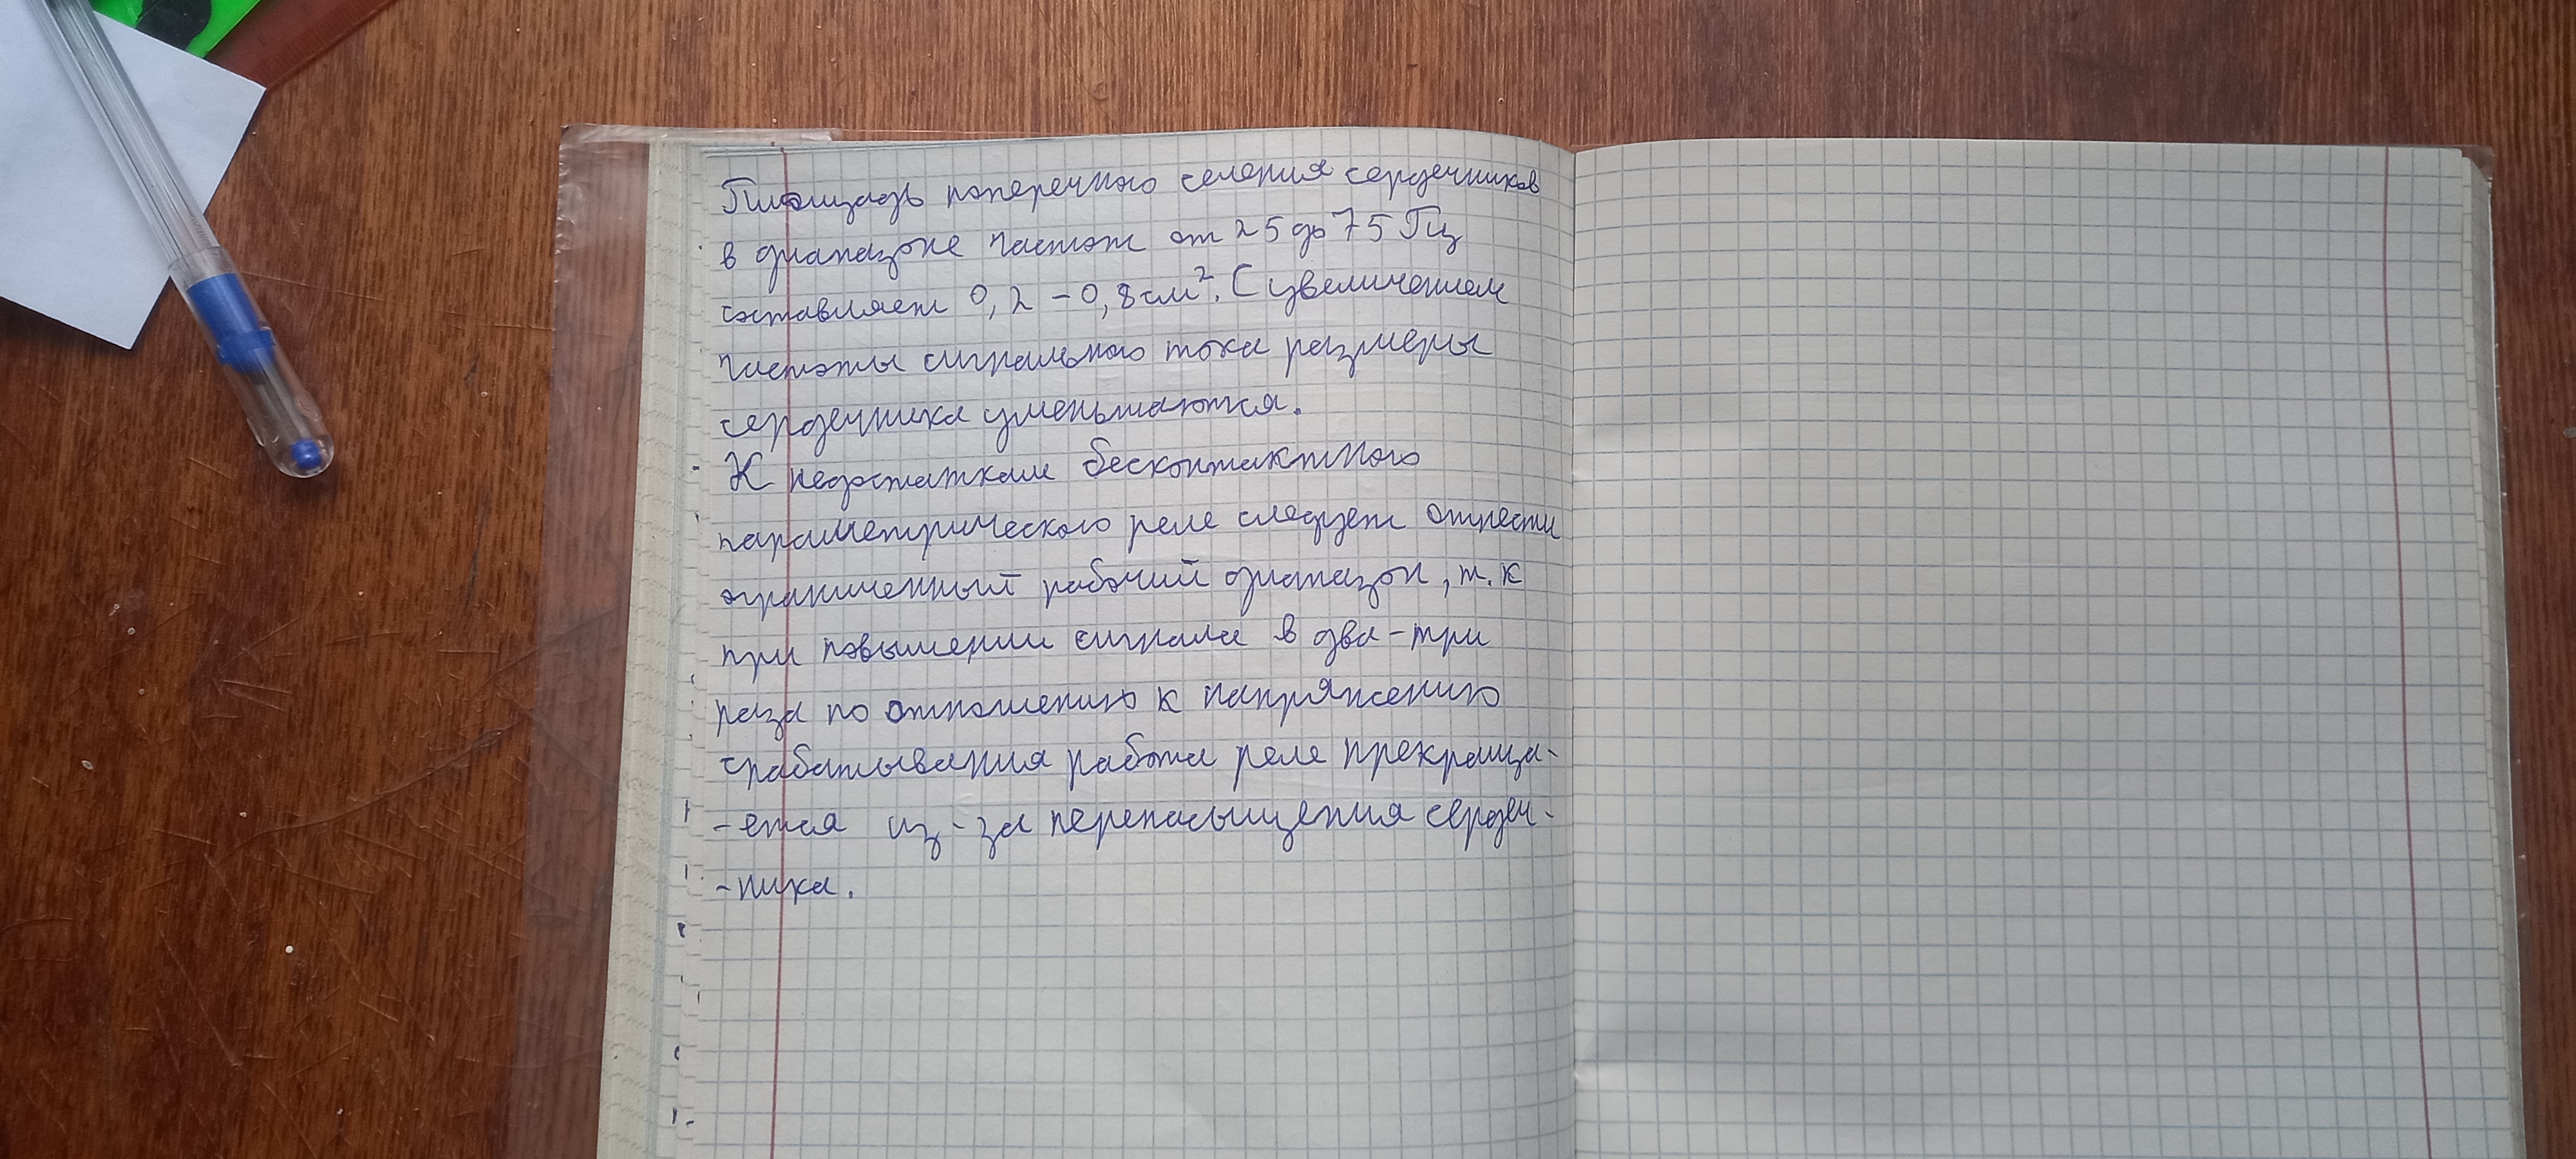 Площадь поперечного сечения сердечников
в диапазоне частот от 25 до 75 Гц
составляет 0,2 - 0,8 см². С увеличением
частоты сигнального тока размеры
сердечника уменьшаются.
К недостаткам бесконтактного
параметрического реле следует отнести
ограниченный рабочий диапазон, т.к
при повышении сигнала в два-три
раза по отношению к напряжению
срабатывания работа реле прекраща-
-ется из-за перенасыщения сердеч-
-ника.